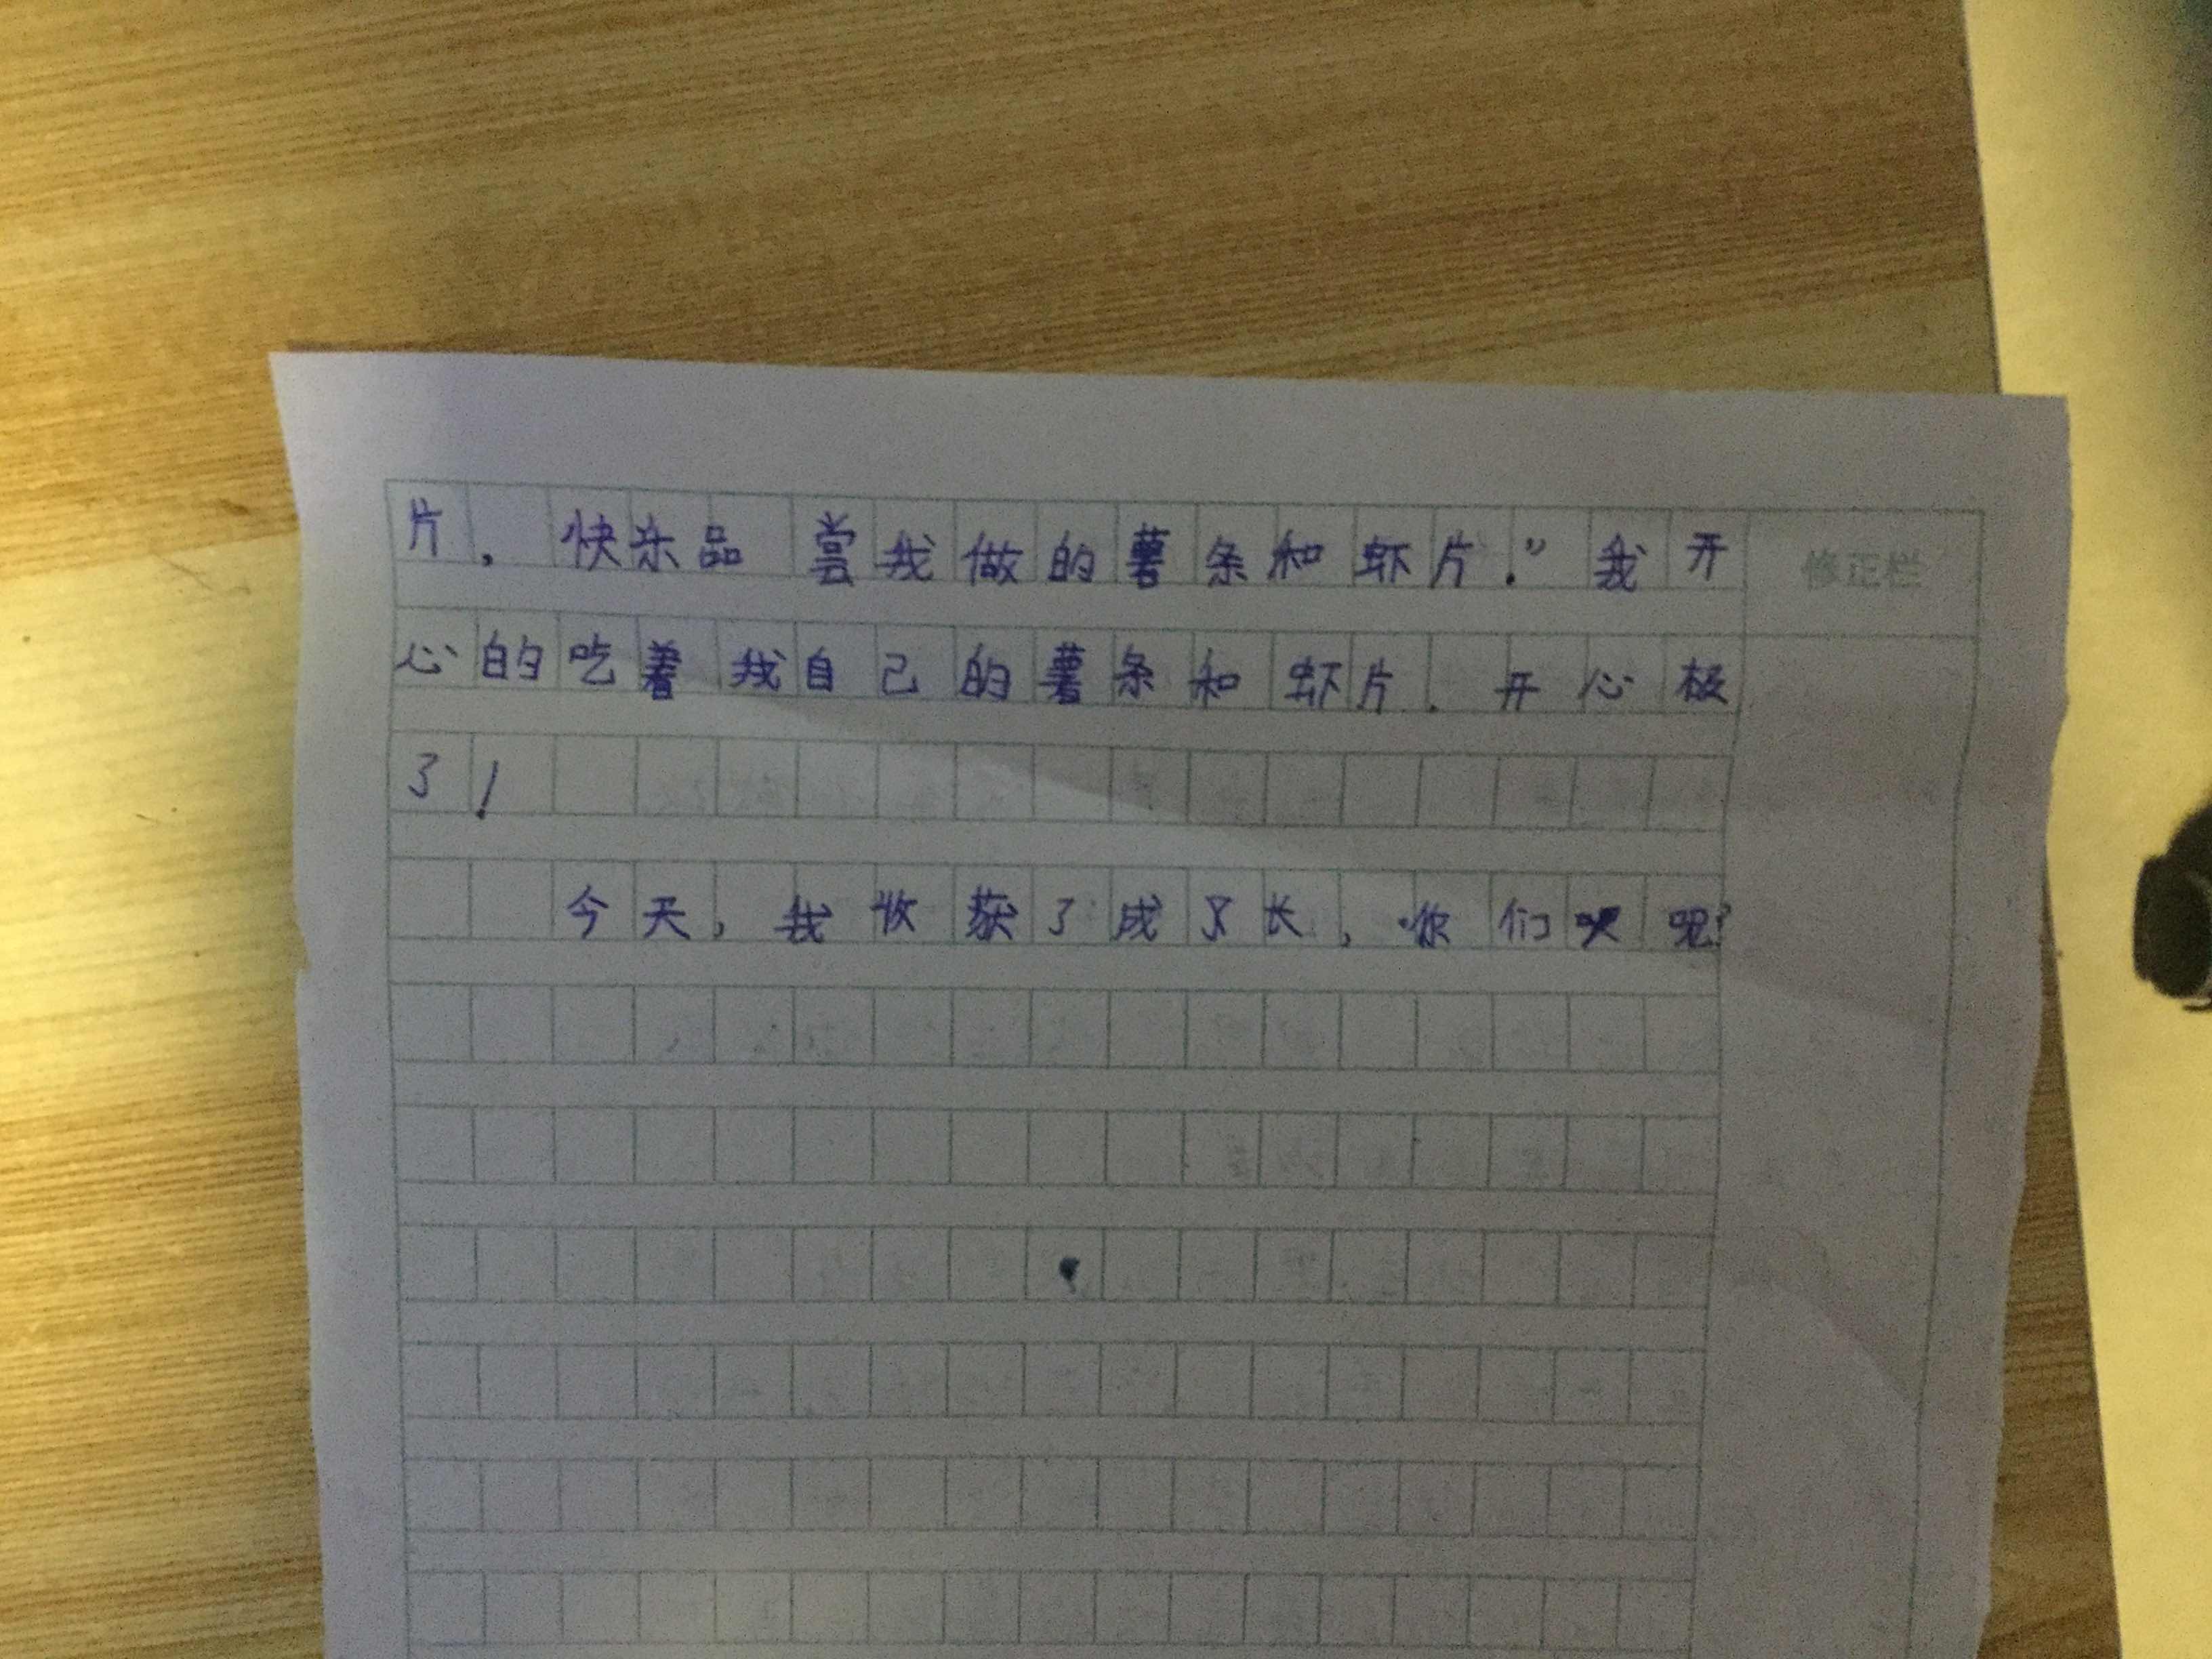 片，快乐品尝我做的薯条和虾片．” 我开
修正栏
心的吃着我自己的薯条和虾片．开心极
了！
今天，我收获了成了长，你们呢？